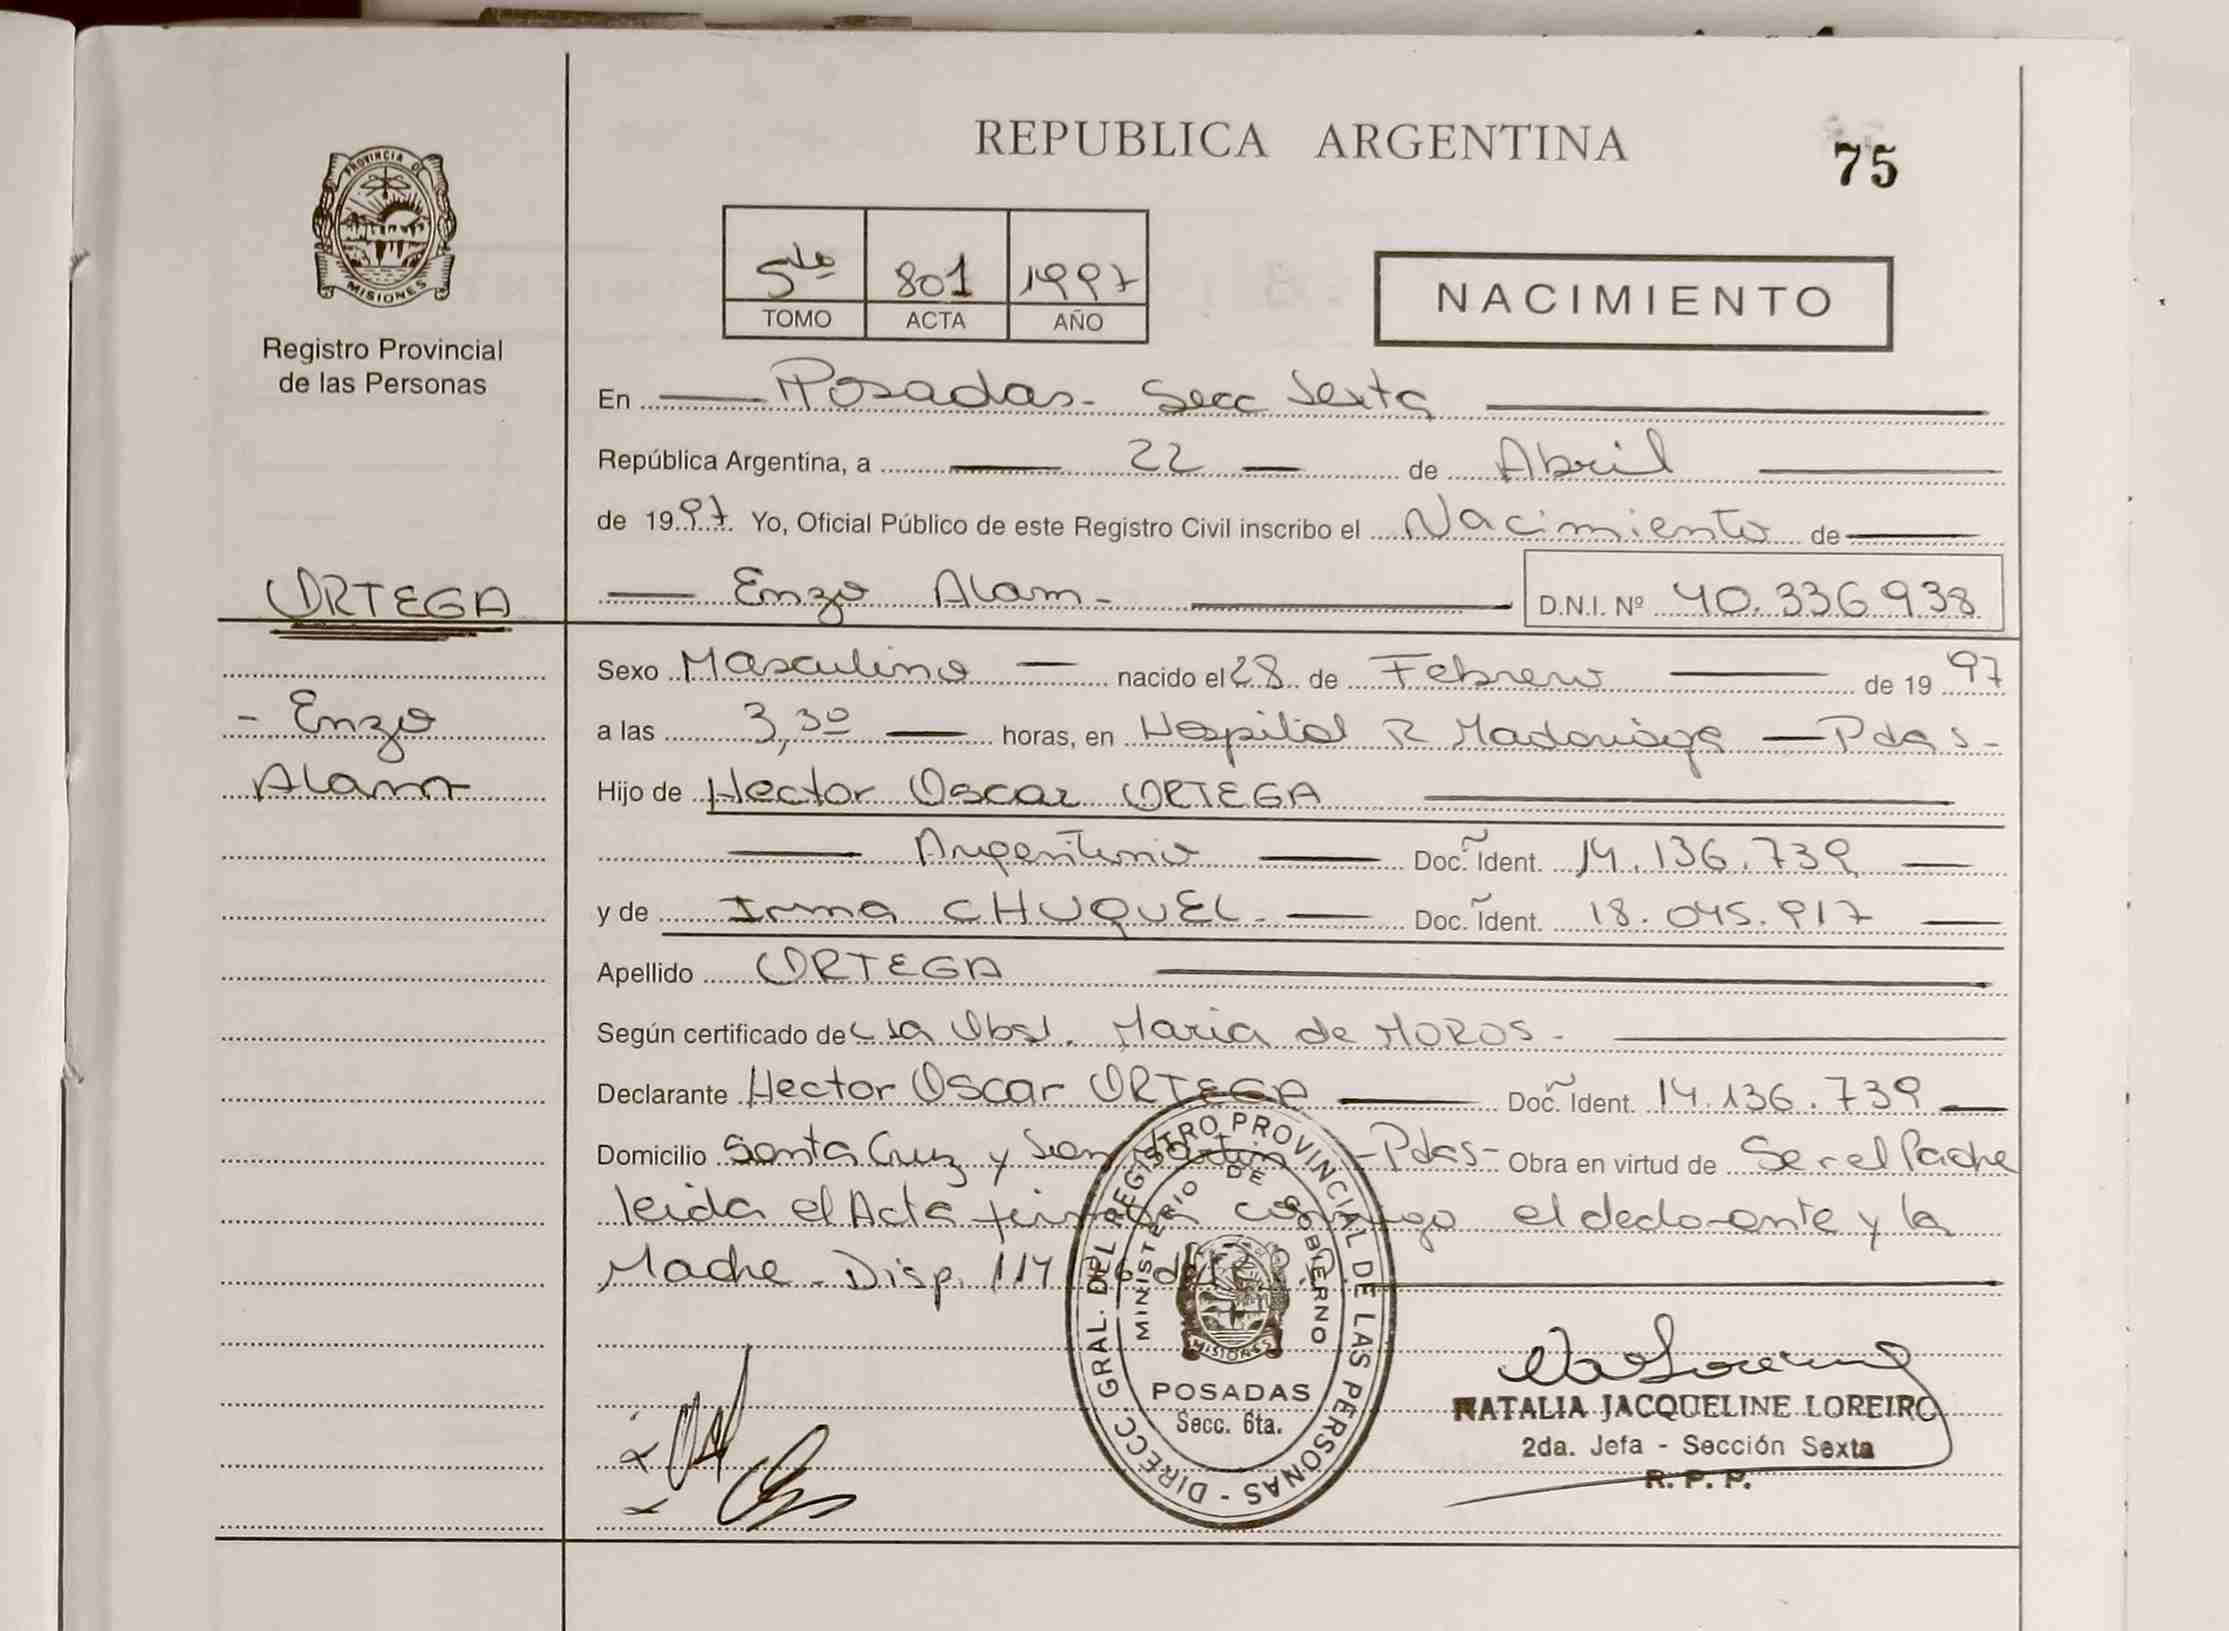 REPUBLICA ARGENTINA
75
PROVINCIA DE
MISIONES
Registro Provincial
de las Personas
5to 801 1997
TOMO ACTA AÑO
NACIMIENTO
En Posadas - Secc Sexta
República Argentina, a 22 de Abril
de 1997 Yo, Oficial Público de este Registro Civil inscribo el Nacimiento de
ORTEGA
Enzo Alam - D.N.I. Nº 40.336.938
- Enzo
Alam
Sexo Masculino nacido el 28 de Febrero de 1997
a las 3,30 horas, en Hospital R Madariaga - Pdas -
Hijo de Hector Oscar ORTEGA
Argentino Doc. Ident. 14.136.739
y de Irma CHUQUEL - Doc. Ident. 18.045.917
Apellido ORTEGA
Según certificado de la Obst. Maria de MOROS -
Declarante Hector Oscar ORTEGA Doc. Ident. 14.136.739
Domicilio Santa Cruz y San Martin - Pdas - Obra en virtud de Ser el Padre
leida el Acta firman conmigo el declarante y la
Madre - Disp. 114
DIRECC. GRAL. DEL REGISTRO PROVINCIAL DE LAS PERSONAS -
MINISTERIO DE GOBIERNO
MISIONES
POSADAS
Secc. 6ta.
NATALIA JACQUELINE LOREIRO
2da. Jefa - Sección Sexta
R. P. P.